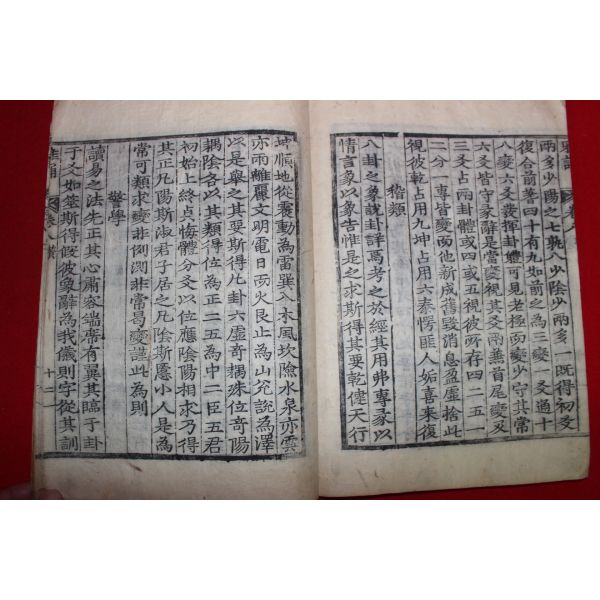 兩多少陽之七孰八少陰少兩多一既得初爻
復合前蓍四十有九如前之為三變一爻通十
八變六爻發揮卦體可見老極而變少守其常
六爻皆守彖辭是當變視其爻兩兼首尾變及
三爻占兩卦體或四或五視彼所存四二五一
二分一專皆變而他新成舊毀消息盈虛捨此
視彼乾占用九坤占用六泰愕匪人姤喜來復
稽類
八卦之象說卦詳焉考之於經其用弗專彖以
情言象以象告惟是之求斯得其要乾健天行
坤順地從震動為雷巽入木風坎險水泉亦雲
亦雨離麗文明電日而火艮止為山兌說為澤
以是舉之其要斯得凡卦六虛奇耦殊位奇陽
耦陰各以其類得位為正二五為中二臣五君
初始上終貞悔體分爻以位應陰陽相求乃得
其正凡陽斯淑君子居之凡陰斯慝小人是為
常可類求變非例測非常曷變謹此為則
警學
讀易之法先正其心肅容端席有翼其臨于卦
于爻如筮斯得假彼象辭為我儀則字從其訓
十二